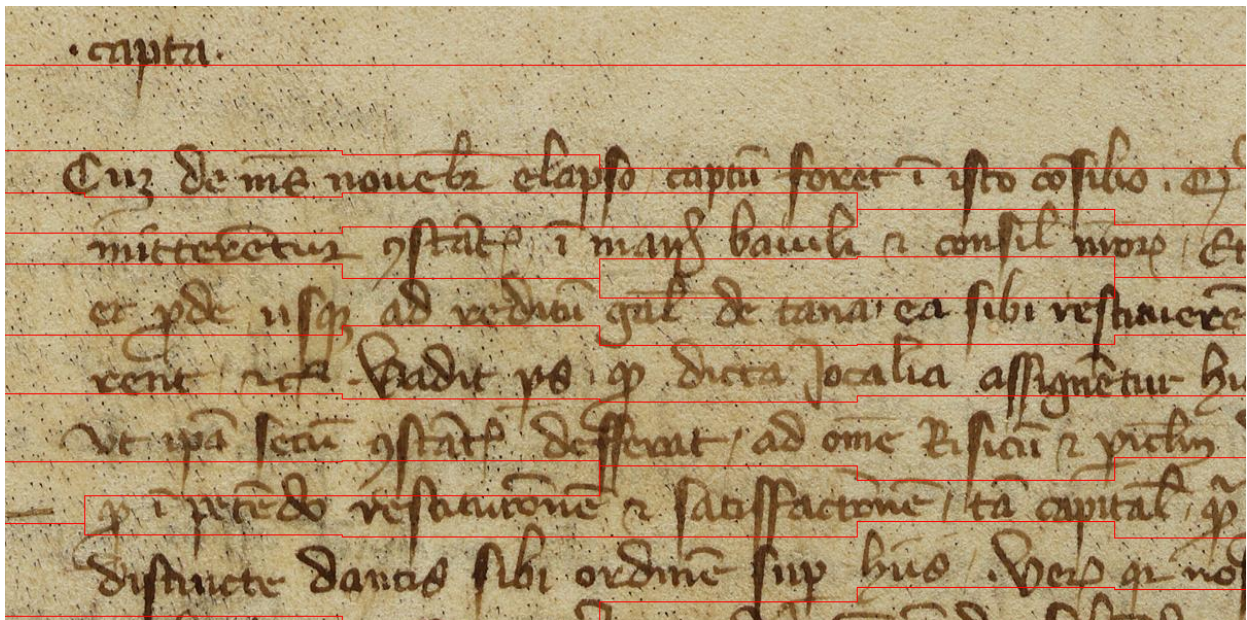 · capta ·
Cuz de mēs nouēbr elapso captū foret ī isto cōsilio . Q
mitterentur ꝯstāt ī man baiuli ⁊ consil nror . Et
et pde usqz ad reditū gal de tana · ea sibi restituerē
rent · ⁊cᵃ . Vadit ps · ꝙ dicta Jocalia assignētur hu
Vt ipā secū ꝯstāt defferat , ad omē Risicū ⁊ piclm
ꝑ ī petēdo restitutōnē ⁊ satisfactōnē , tā capital , qᷓ
distincte dantis sibi ordinē suꝑ hīis . Veꝝ qr nos